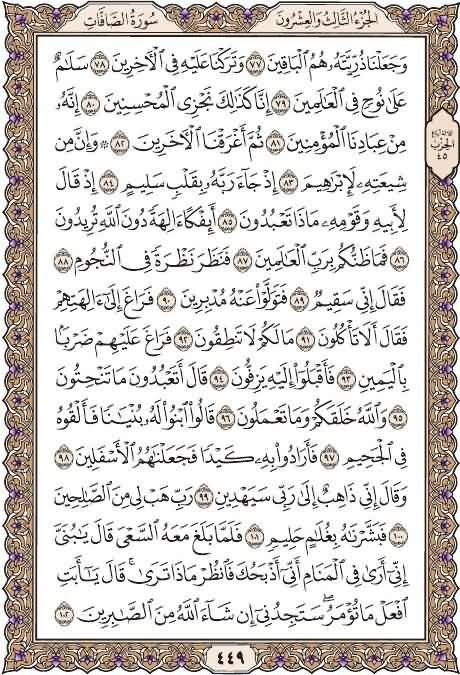 الجزء الثالث والعشرون
سورة الصافات
وَجَعَلْنَا ذُرِّيَّتَهُۥ هُمُ ٱلْبَاقِينَ ٧٧ وَتَرَكْنَا عَلَيْهِ فِى ٱلْأَخِرِينَ ٧٨ سَلَٰمٌ
عَلَىٰ نُوحٍ فِى ٱلْعَٰلَمِينَ ٧٩ إِنَّا كَذَٰلِكَ نَجْزِى ٱلْمُحْسِنِينَ ٨٠ إِنَّهُۥ
مِنْ عِبَادِنَا ٱلْمُؤْمِنِينَ ٨١ ثُمَّ أَغْرَقْنَا ٱلْأَخَرِينَ ٨٢ ۞ وَإِنَّ مِن
شِيعَتِهِۦ لَإِبْرَٰهِيمَ ٨٣ إِذْ جَآءَ رَبَّهُۥ بِقَلْبٍ سَلِيمٍ ٨٤ إِذْ قَالَ
لِأَبِيهِ وَقَوْمِهِۦ مَاذَا تَعْبُدُونَ ٨٥ أَئِفْكًا ءَالِهَةً دُونَ ٱللَّهِ تُرِيدُونَ
٨٦ فَمَا ظَنُّكُم بِرَبِّ ٱلْعَٰلَمِينَ ٨٧ فَنَظَرَ نَظْرَةً فِى ٱلنُّجُومِ ٨٨
فَقَالَ إِنِّى سَقِيمٌ ٨٩ فَتَوَلَّوْا۟ عَنْهُ مُدْبِرِينَ ٩٠ فَرَاغَ إِلَىٰٓ ءَالِهَتِهِمْ
فَقَالَ أَلَا تَأْكُلُونَ ٩١ مَا لَكُمْ لَا تَنطِقُونَ ٩٢ فَرَاغَ عَلَيْهِمْ ضَرْبًۢا
بِٱلْيَمِينِ ٩٣ فَأَقْبَلُوٓا۟ إِلَيْهِ يَزِفُّونَ ٩٤ قَالَ أَتَعْبُدُونَ مَا تَنْحِتُونَ
٩٥ وَٱللَّهُ خَلَقَكُمْ وَمَا تَعْمَلُونَ ٩٦ قَالُوا۟ ٱبْنُوا۟ لَهُۥ بُنْيَٰنًا فَأَلْقُوهُ
فِى ٱلْجَحِيمِ ٩٧ فَأَرَادُوا۟ بِهِۦ كَيْدًا فَجَعَلْنَٰهُمُ ٱلْأَسْفَلِينَ ٩٨
وَقَالَ إِنِّى ذَاهِبٌ إِلَىٰ رَبِّى سَيَهْدِينِ ٩٩ رَبِّ هَبْ لِى مِنَ ٱلصَّٰلِحِينَ
١٠٠ فَبَشَّرْنَٰهُ بِغُلَٰمٍ حَلِيمٍ ١٠١ فَلَمَّا بَلَغَ مَعَهُ ٱلسَّعْىَ قَالَ يَٰبُنَىَّ
إِنِّىٓ أَرَىٰ فِى ٱلْمَنَامِ أَنِّىٓ أَذْبَحُكَ فَٱنظُرْ مَاذَا تَرَىٰ ۚ قَالَ يَٰٓأَبَتِ
ٱفْعَلْ مَا تُؤْمَرُ ۖ سَتَجِدُنِىٓ إِن شَآءَ ٱللَّهُ مِنَ ٱلصَّٰبِرِينَ ١٠٢
الحزب
٤٥
٤٤٩